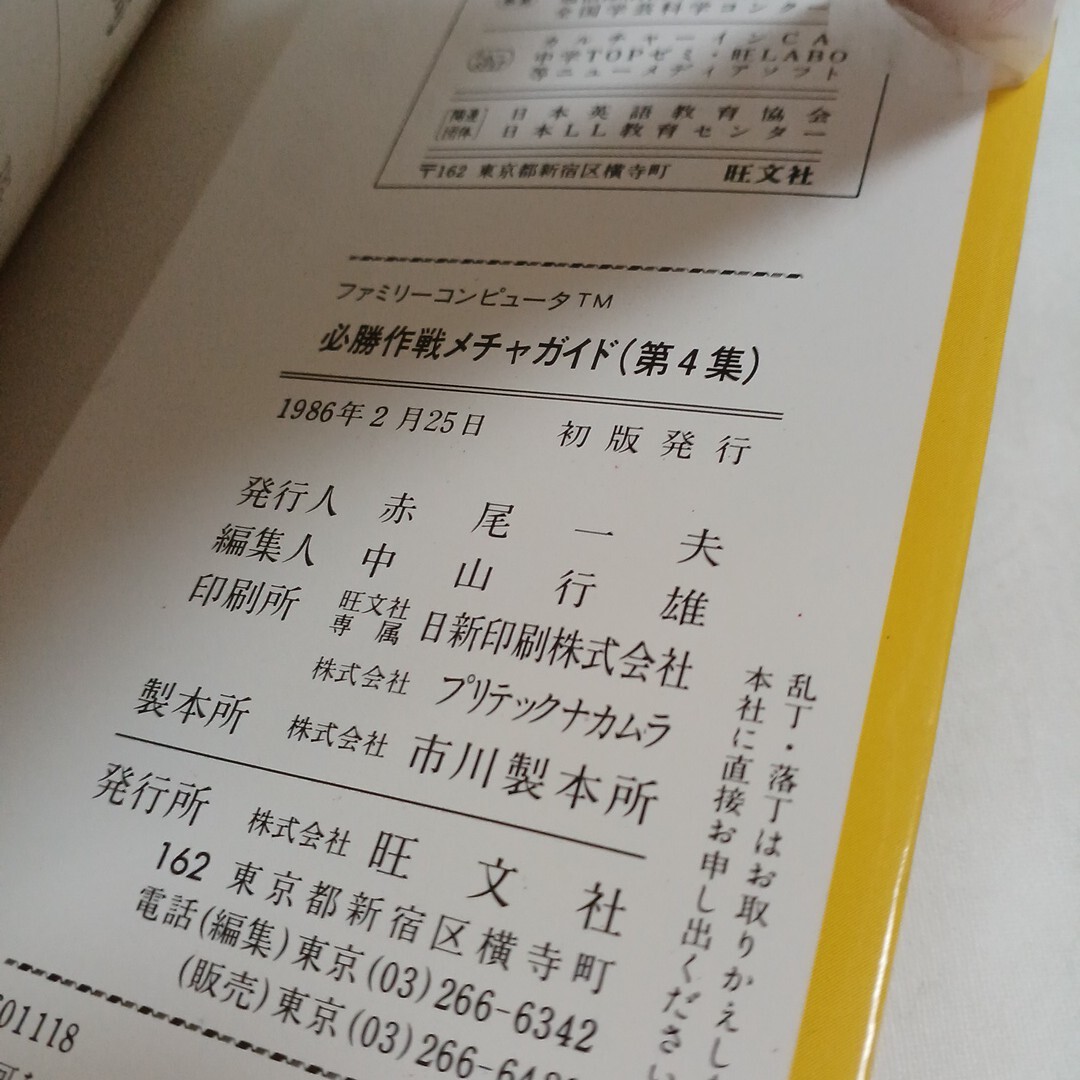 全国学芸科学コンクー
カルチャーインCA
中学TOPゼミ・旺LABO
等ニューメディアソフト
関連団体
日本英語教育協会
日本LL教育センター
〒162 東京都新宿区横寺町 旺文社
ファミリーコンピュータTM
必勝作戦メチャガイド(第4集)
1986年2月25日 初版発行
発行人 赤尾一夫
編集人 中山行雄
印刷所 旺文社専属 日新印刷株式会社
株式会社 プリテックナカムラ
製本所 株式会社 市川製本所
発行所 株式会社 旺文社
162 東京都新宿区横寺町
電話(編集)東京(03)266-6342
(販売)東京(03)266-64
乱丁・落丁はお取りかえし
本社に直接お申し出ください
01118